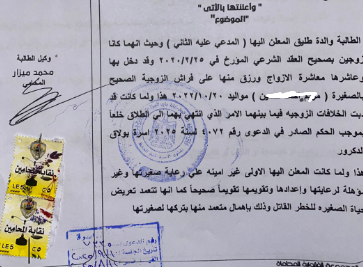 وأعلنتها بالآتى
"الموضوع"
الطالبة والدة طليق المعلن اليها ( المدعي عليه الثاني ) وحيث انهما كانا
زوجين بصحيح العقد الشرعي المؤرخ في ٢٠٢٠/٢/٢٥ وقد دخل بها
وعاشرها معاشرة الازواج ورزق منها على فراش الزوجية الصحيح
بالصغيرة ( مواليد ٢٠٢٢/١٠/٢٠ هذا ولما كانت قد
دبت الخلافات الزوجيه فيما بينهما الامر الذي انتهي بهما الي الطلاق خلعاً
بموجب الحكم الصادر في الدعوى رقم ٤٠٧٢ لسنة ٢٠٢٥ اسرة بولاق
الدكرور
هذا ولما كانت المعلن اليها الاولى غير امينة على رعاية صغيرتها وغير
مؤهلة لرعايتها وإعدادها وتقويمها تقويماً صحيحاً كما انها تتعمد تعريض
حياة الصغيره للخطر القاتل وذلك بإهمال متعمد منها بتركها لصغيرتها
وكيل الطالبة
محمد ميزار
المحامى
نقابة المحامين
LE5
نقابة المحامين
LE5